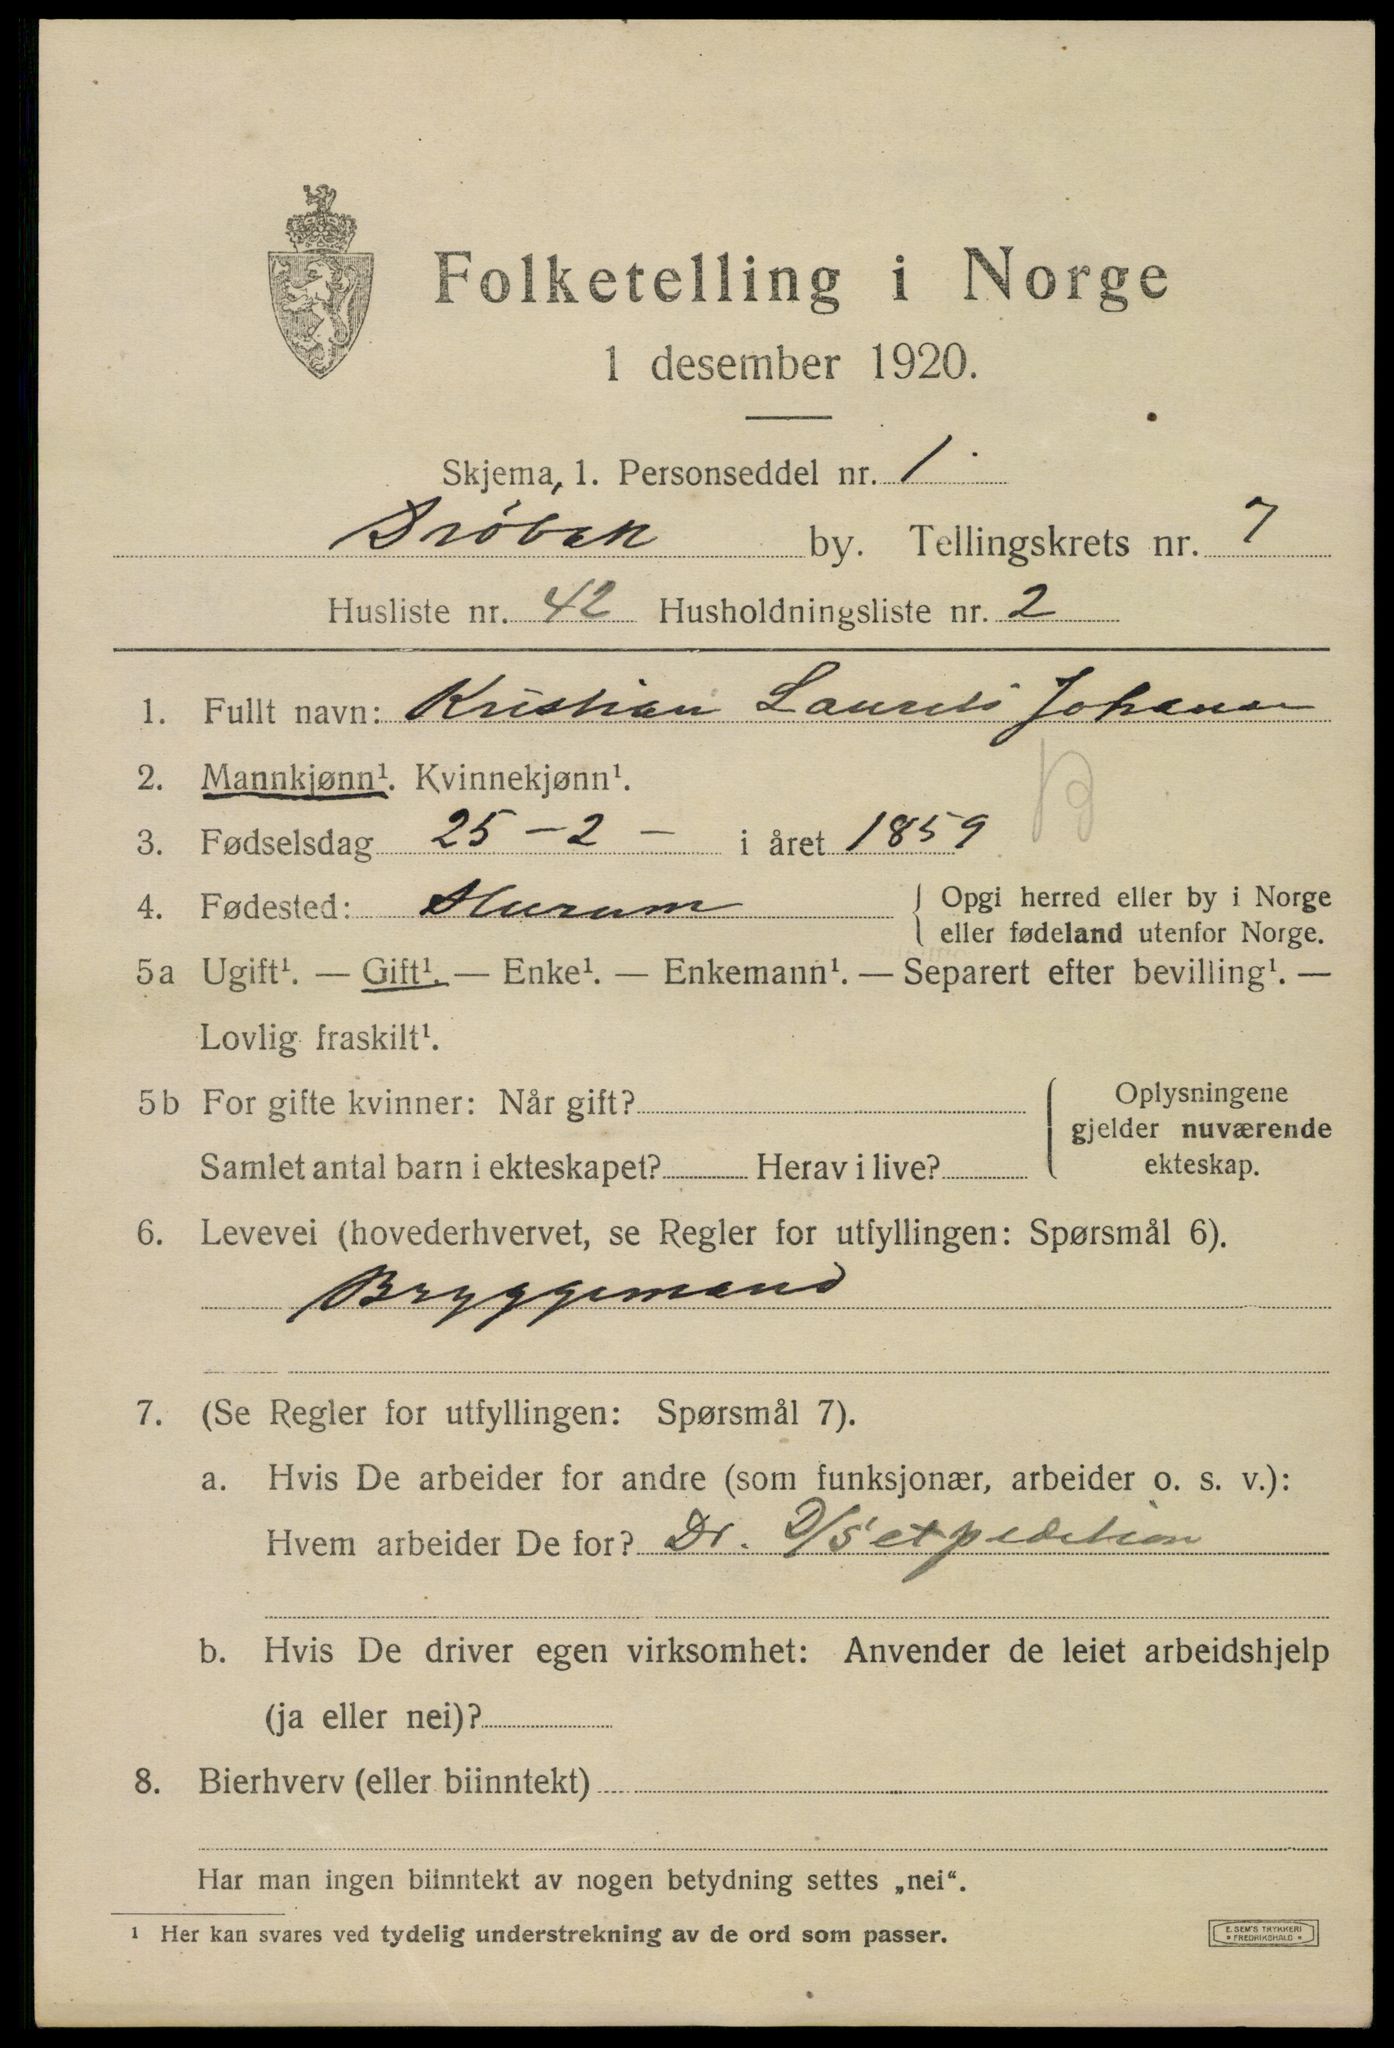 Folketelling i Norge
1 desember 1920.
Skjema, 1. Personseddel nr. 1
Drøbak by. Tellingskrets nr. 7
Husliste nr. 42 Husholdningsliste nr. 2
1. Fullt navn: Kristian Laurits Johansen
2. Mannkjønn¹. Kvinnekjønn¹.
B
3. Fødselsdag 25 - 2 - i året 1859
4. Fødested: Hurum { Opgi herred eller by i Norge
eller fødeland utenfor Norge.
5a Ugift¹. — Gift¹. — Enke¹. — Enkemann¹. — Separert efter bevilling¹. —
Lovlig fraskilt¹.
5b For gifte kvinner: Når gift?
Samlet antal barn i ekteskapet? Herav i live?
{ Oplysningene
gjelder nuværende
ekteskap.
6. Levevei (hovederhvervet, se Regler for utfyllingen: Spørsmål 6).
Bryggemand
7. (Se Regler for utfyllingen: Spørsmål 7).
a. Hvis De arbeider for andre (som funksjonær, arbeider o. s. v.):
Hvem arbeider De for? Dr. D/S expedition
b. Hvis De driver egen virksomhet: Anvender de leiet arbeidshjelp
(ja eller nei)?
8. Bierhverv (eller biinntekt)
Har man ingen biinntekt av nogen betydning settes „nei“.
¹ Her kan svares ved tydelig understrekning av de ord som passer.
E. SEM'S TRYKKERI
* FREDRIKSHALD *